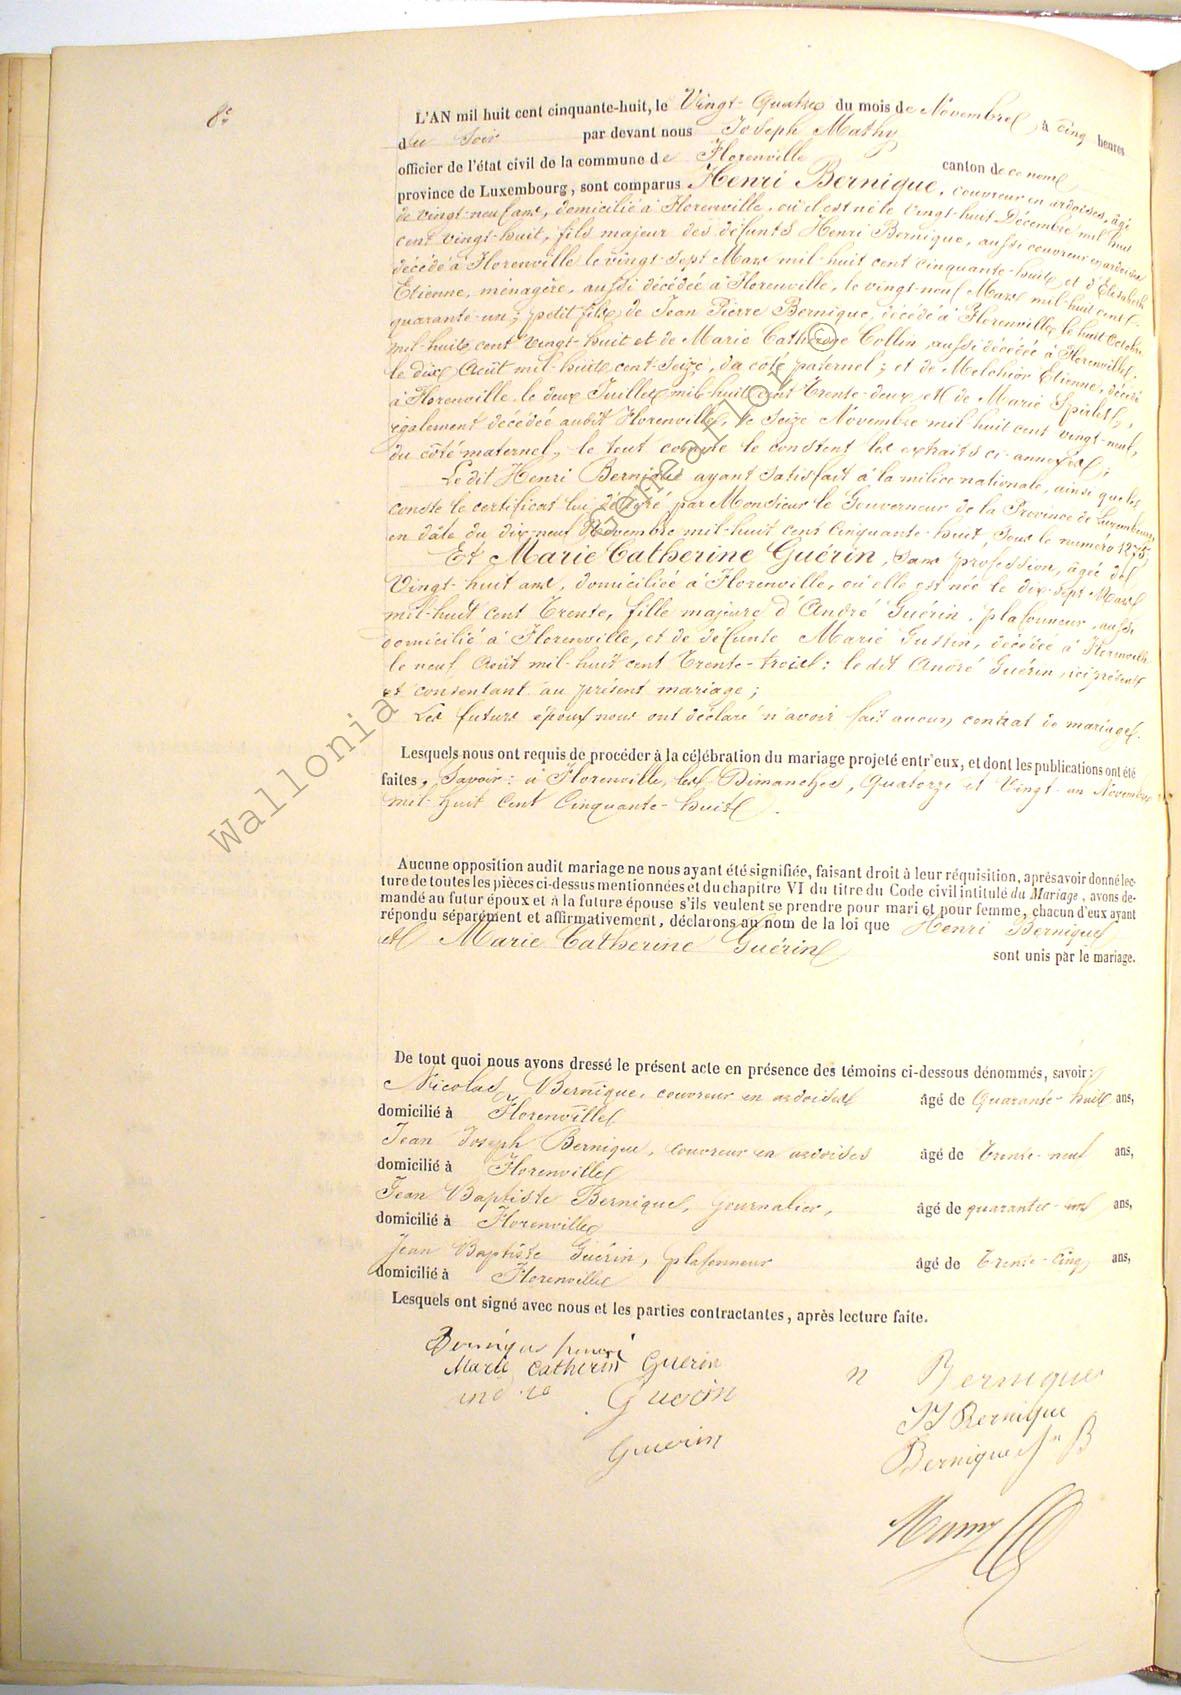 8e
L'AN mil huit cent cinquante-huit, le Vingt-Quatre du mois de Novembre, à cinq heures
du soir par devant nous Joseph Mathy
officier de l'état civil de la commune de Florenville canton de ce nom
province de Luxembourg, sont comparus Henri Bernique, couvreur en ardoises, âgé
de vingt-neuf ans, domicilié à Florenville, où il est né le vingt-huit Décembre mil huit
cent vingt-huit, fils majeur des défunts Henri Bernique, aussi couvreur en ardoises
décédé à Florenville le vingt-sept Mars mil-huit cent cinquante-huit et d'Elisabeth
Etienne, ménagère, aussi décédée à Florenville, le vingt-neuf Mars mil-huit cent
quarante-un; petit fils de Jean Pierre Bernique, décédé à Florenville le huit Octobre
mil-huit cent vingt-huit et de Marie Catherine Collin, aussi décédée à Florenville,
le dix Août mil-huit cent-seize, du côté paternel; et de Melchior Etienne, décédé
à Florenville le deux Juillet mil huit cent trente-deux et de Marie
également décédée audit Florenville, le seize Novembre mil huit cent vingt-neuf,
du côté maternel, le tout comme le constent les extraits ci-annexés;
Le dit Henri Bernique ayant satisfait à la milice nationale, ainsi que le
conste le certificat lui délivré par Monsieur le Gouverneur de la Province de Luxembourg
en date du dix-neuf Novembre mil-huit cent cinquante-huit, sous le numéro 1275,
Et Marie Catherine Guérin, sans profession, âgée de
Vingt-huit ans, domiciliée à Florenville, où elle est née le dix-sept Mars
mil-huit cent trente, fille majeure d'André Guérin, plafonneur, aussi
domicilié à Florenville, et de défunte Marie Gussin, décédée à Florenville
le neuf Août mil-huit cent trente-trois: le dit André Guérin, ici présent
et consentant au présent mariage;
Les futurs époux nous ont déclaré n'avoir fait aucun contrat de mariage.
Lesquels nous ont requis de procéder à la célébration du mariage projeté entr'eux, et dont les publications ont été
faites, Savoir: à Florenville, les Dimanches, quatorze et Vingt-un Novembre
mil-huit cent cinquante-huit.
Aucune opposition audit mariage ne nous ayant été signifiée, faisant droit à leur réquisition, après avoir donné lec-
ture de toutes les pièces ci-dessus mentionnées et du chapitre VI du titre du Code civil intitulé du Mariage, avons de-
mandé au futur époux et à la future épouse s'ils veulent se prendre pour mari et pour femme, chacun d'eux ayant
répondu séparément et affirmativement, déclarons au nom de la loi que Henri Bernique
et Marie Catherine Guérin
sont unis par le mariage.
De tout quoi nous avons dressé le présent acte en présence des témoins ci-dessous dénommés, savoir:
Nicolas Bernique, couvreur en ardoises âgé de Quarante-huit ans,
domicilié à Florenville
Jean Joseph Bernique, couvreur en ardoises âgé de Trente-neuf ans,
domicilié à Florenville
Jean Baptiste Bernique, journalier, âgé de quarante-un ans,
domicilié à Florenville
Jean Baptiste Guérin, plafonneur âgé de Trente-Cinq ans,
domicilié à Florenville
Lesquels ont signé avec nous et les parties contractantes, après lecture faite.
Bernique henri
Marie catherin Guerin n Bernique
Guerin JJ Bernique
Guerin Bernique Jn B
Wallonia ©